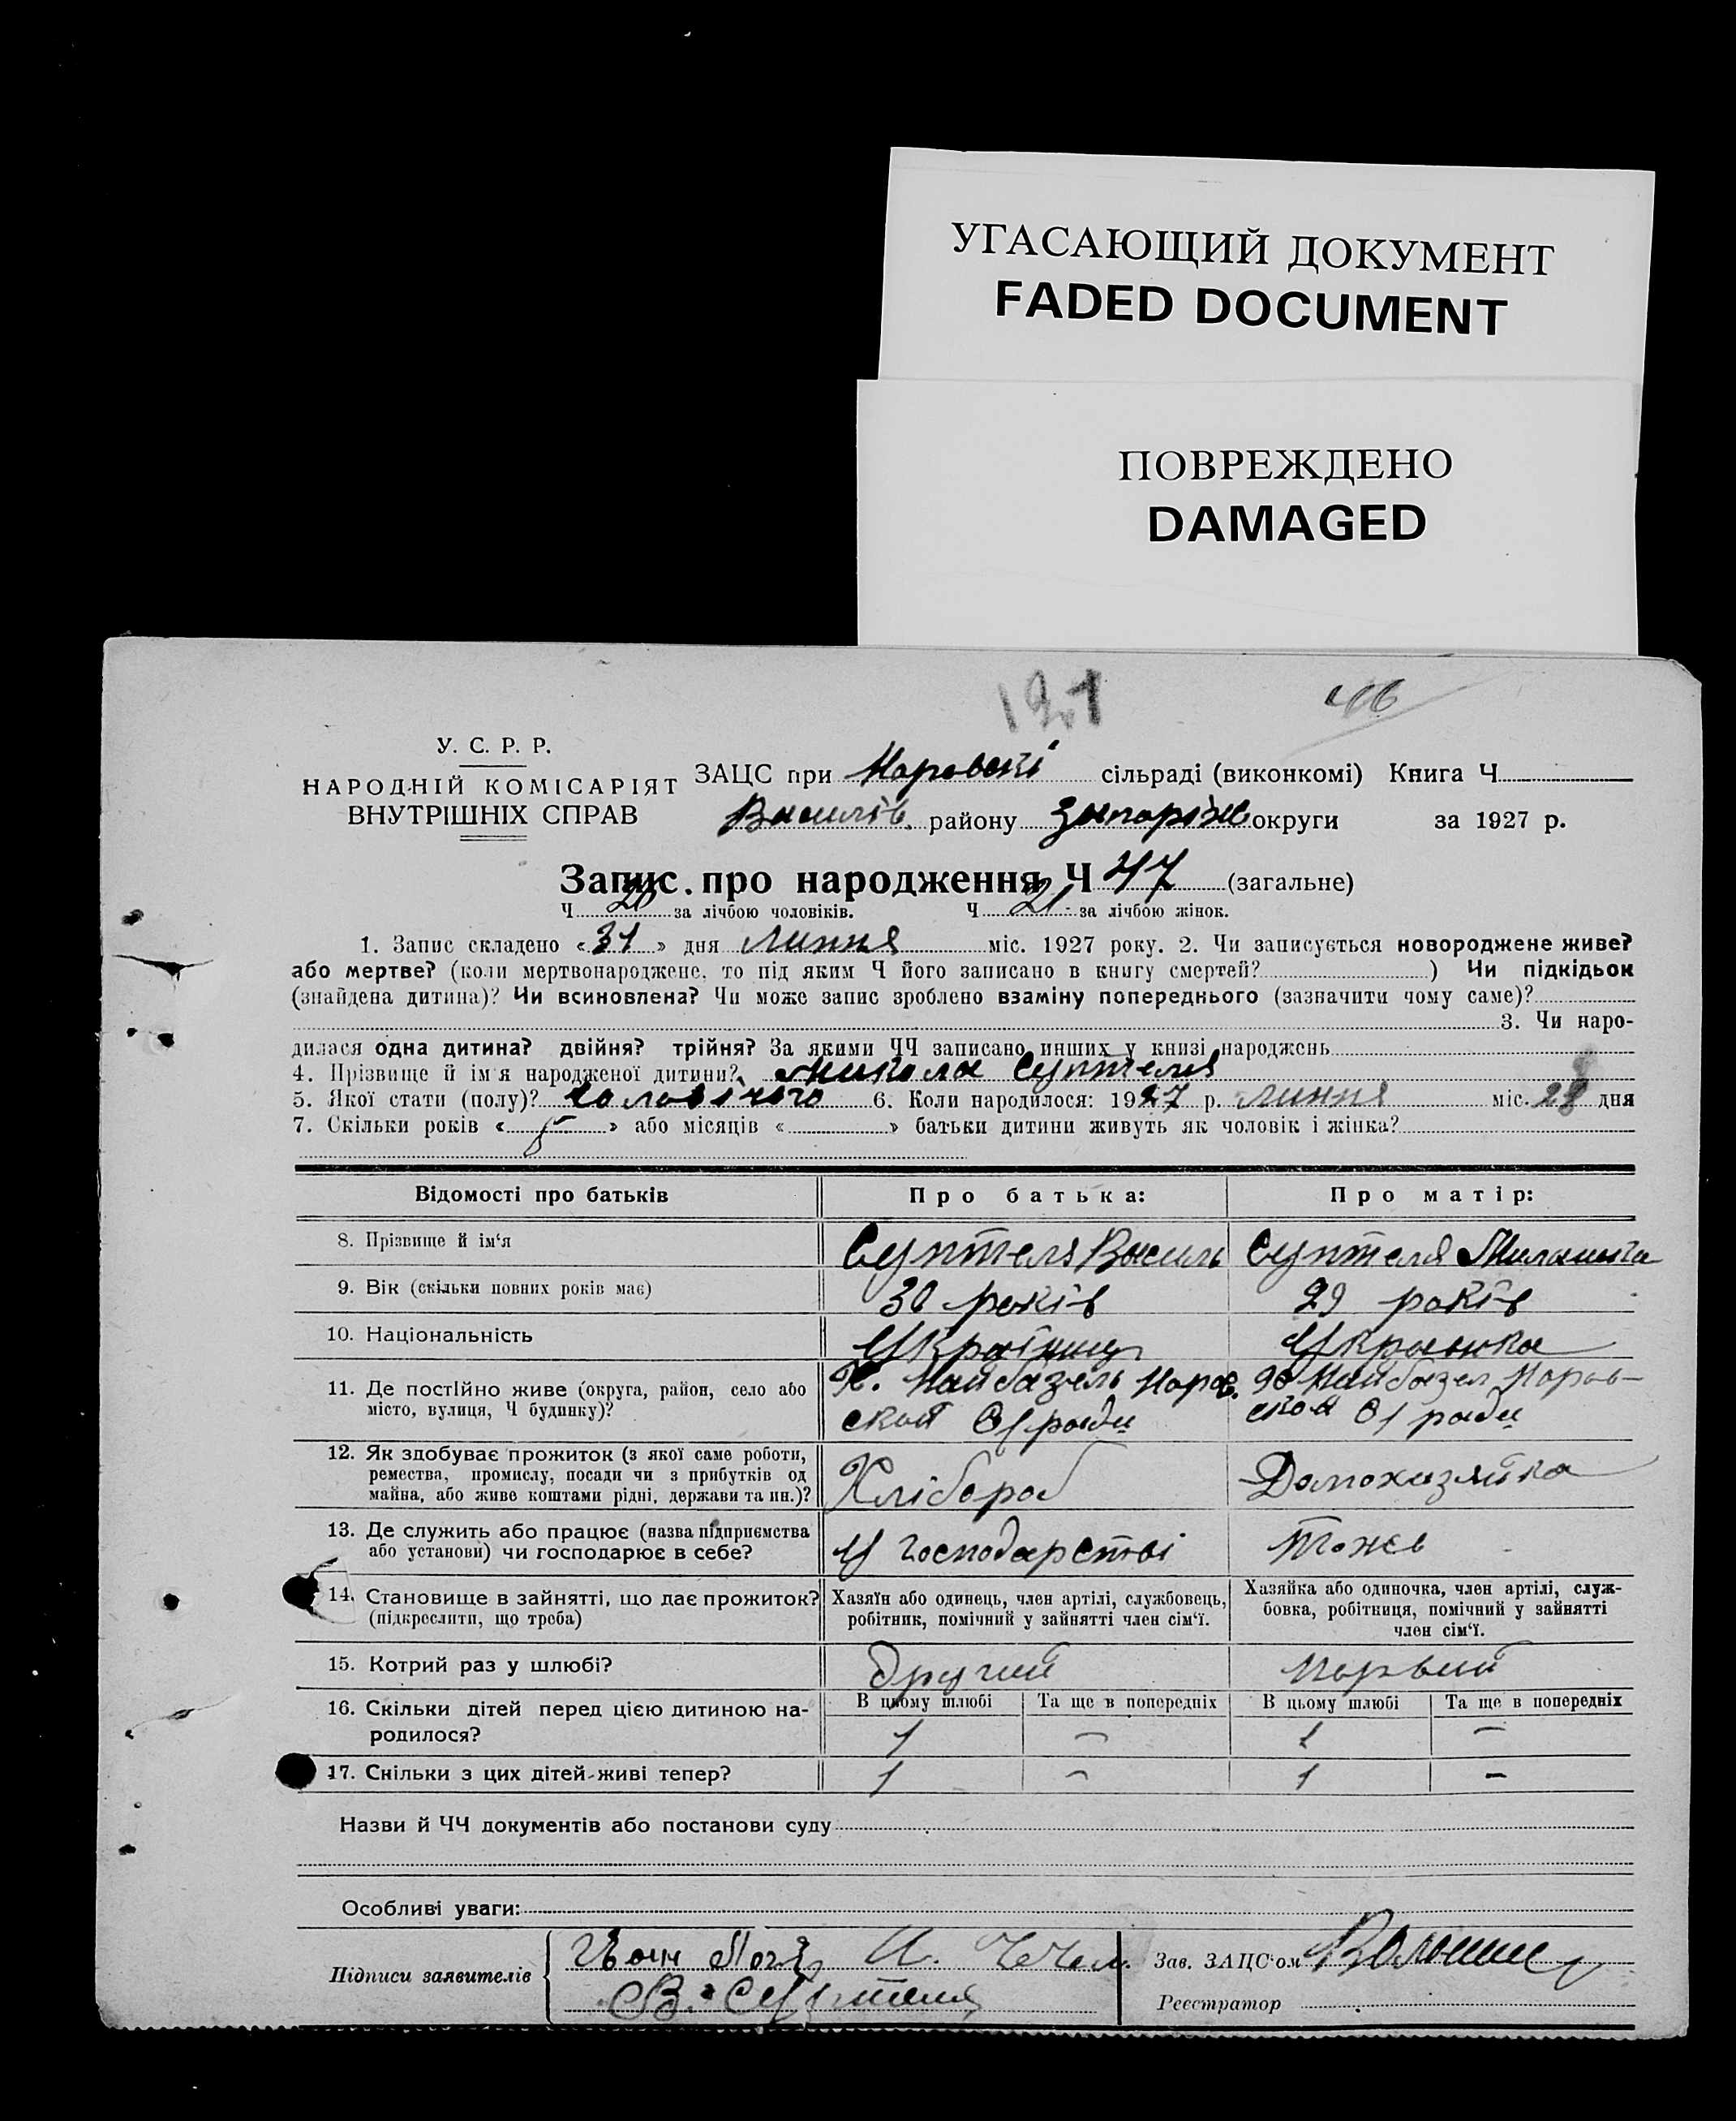 УГАСАЮЩИЙ ДОКУМЕНТ
FADED DOCUMENT
ПОВРЕЖДЕНО
DAMAGED
У. С. Р. Р.
НАРОДНІЙ КОМІСАРІЯТ
ВНУТРІШНІХ СПРАВ
ЗАЦС при сільраді (виконкомі) Книга Ч
Василів. району Запоріж округи за 1927 р.
Запис про народження Ч 47 (загальне)
Ч 20 за лічбою чоловіків. Ч 21 за лічбою жінок.
1. Запис складено «31» дня Липня міс. 1927 року. 2. Чи записується новороджене живе?
або мертве? (коли мертвонароджене, то під яким Ч його записано в книгу смертей? ) Чи підкідьок
(знайдена дитина)? Чи всиновлена? Чи може запис зроблено взаміну попереднього (зазначити чому саме)?
3. Чи наро-
дилася одна дитина? двійня? трійня? За якими ЧЧ записано инших у книзі народжень
4. Прізвище й ім'я народженої дитини? Микола Суптеля
5. Якої стати (полу)? 6. Коли народилося: 1927 р. липня міс. 28 дня
7. Скільки років « 5 » або місяців « » батьки дитини живуть як чоловік і жінка?
Відомості про батьків
Про батька:
Про матір:
8. Прізвище й ім'я
Суптеля Василь
Суптеля
9. Вік (скільки повних років має)
30 років
29 років
10. Національність
Українец
Украинка
11. Де постійно живе (округа, район, село або
місто, вулиця, Ч будинку)?
Х. Найбазель
ской С/ради
ской С/ради
12. Як здобуває прожиток (з якої саме роботи,
ремества, промислу, посади чи з прибутків од
майна, або живе коштами рідні, держави та ин.)?
Хлібороб
Домохазяйка
13. Де служить або працює (назва підприємства
або установи) чи господарює в себе?
У господарстві
14. Становище в зайнятті, що дає прожиток?
(підкреслити, що треба)
Хазяїн або одинець, член артілі, службовець,
робітник, помічний у зайнятті член сім'ї.
Хазяйка або одиночка, член артілі, служ-
бовка, робітниця, помічний у зайнятті
член сім'ї.
15. Котрий раз у шлюбі?
другий
первий
16. Скільки дітей перед цією дитиною на-
родилося?
В цьому шлюбі
Та ще в попередніх
В цьому шлюбі
Та ще в попередніх
1 – 1 –
17. Скільки з цих дітей живі тепер?
1 – 1 –
Назви й ЧЧ документів або постанови суду
Особливі уваги:
Підписи заявителів
В. Суптеля
Зав. ЗАЦС'ом
Реєстратор